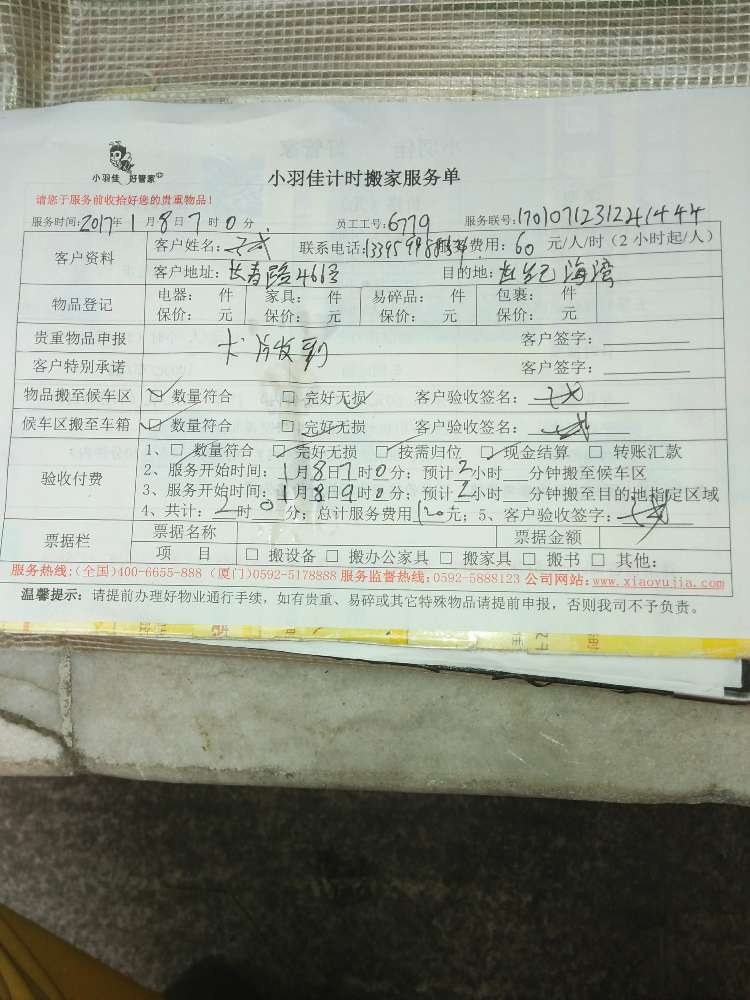 小羽佳 好管家
小羽佳计时搬家服务单
请您于服务前收拾好您的贵重物品!
服务时间:2017年1月8日7时0分 员工工号:6779 服务联号:17010712312241444
客户资料 客户姓名: 联系电话: 费用:60元/人/时(2小时起/人)
客户地址:长春路466号 目的地:海湾
物品登记 电器: 件 家具: 件 易碎品: 件 包裹: 件
保价: 元 保价: 元 保价: 元 保价: 元
贵重物品申报 客户签字:
客户特别承诺 客户签字:
物品搬至候车区 ☑ 数量符合 □ 完好无损 客户验收签名:
候车区搬至车箱 ☑ 数量符合 □ 完好无损 客户验收签名:
验收付费 1、□ 数量符合 □ 完好无损 □ 按需归位 □ 现金结算 □ 转账汇款
2、服务开始时间:1月8日7时0分;预计2小时 分钟搬至候车区
3、服务开始时间:1月8日9时0分;预计2小时 分钟搬至目的地指定区域
4、共计:2时0分;总计服务费用120元;5、客户验收签字:
票据栏 票据名称 票据金额
项 目 □ 搬设备 □ 搬办公家具 □ 搬家具 □ 搬书 □ 其他:
服务热线:(全国)400-6655-888 (厦门)0592-5178888 服务监督热线:0592-5888123 公司网站:www.xiaoyujia.com
温馨提示:请提前办理好物业通行手续,如有贵重、易碎或其它特殊物品请提前申报,否则我司不予负责。